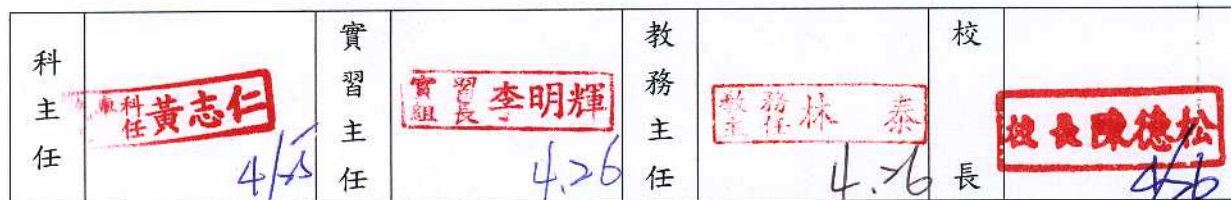 科主任
科任 黃志仁
4/25
實習主任
實習組長 李明輝
4.26
教務主任
教務主任 林泰
4.26
校長
校長陳德松
4/26